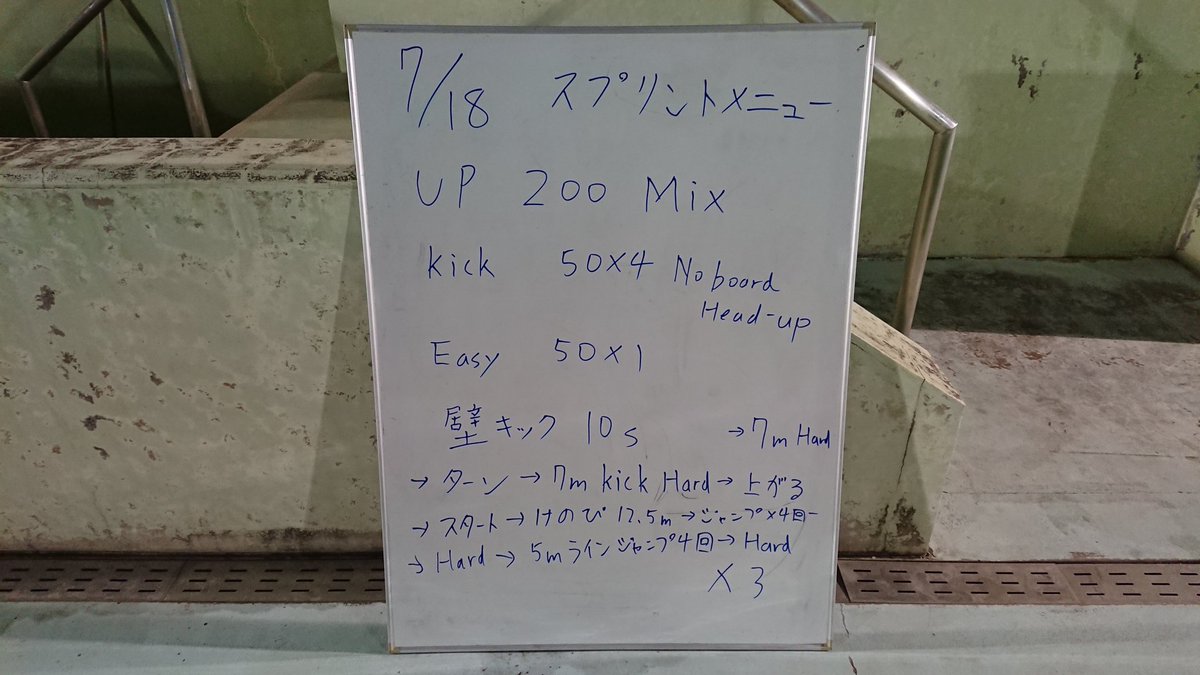 7/18 スプリントメニュー
UP 200 Mix
kick 50×4 No board
Head-up
Easy 50×1
壁キック 10s →7m Hard
→ターン→7m kick Hard→上がる
→スタート→けのび 12.5m→ジャンプ×4回-
→Hard→5mラインジャンプ4回→Hard
×3